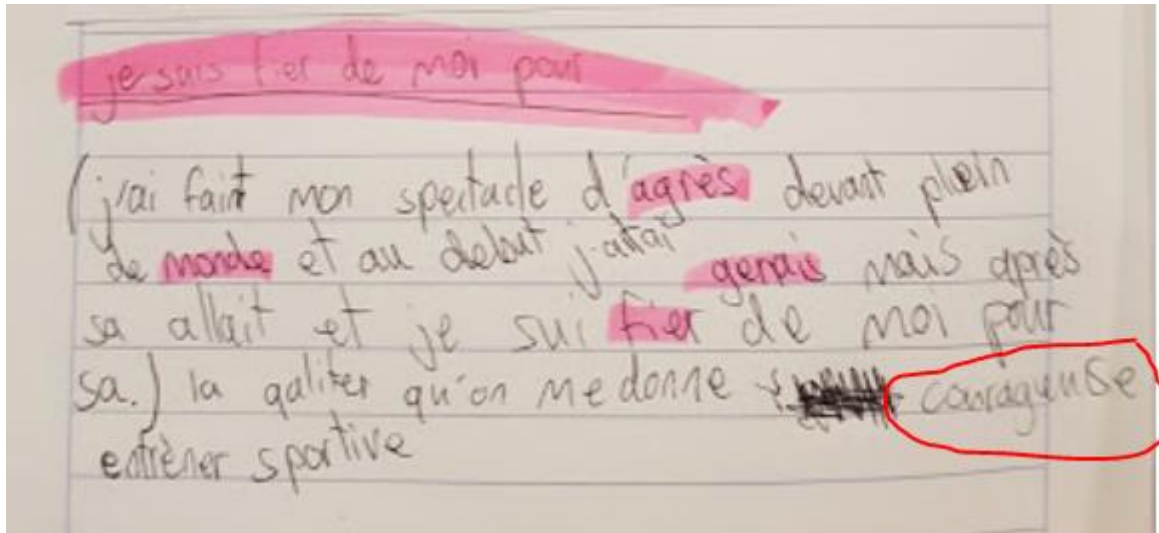 je suis fier de moi pour
(j'ai faint mon spectacle d'agrès devant plein
de monde et au debut j'attai genais mais après
sa allait et je sui fier de moi pour
sa.) la qaliter qu'on me donne courageuse
entrèner sportive